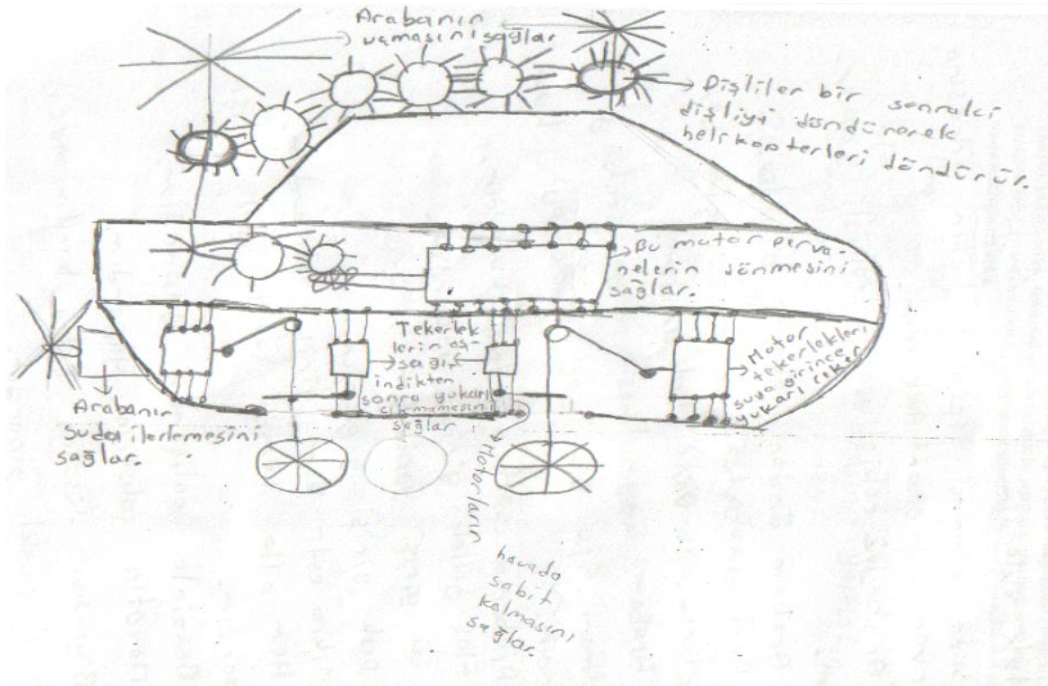 Arabanın
uçmasını sağlar
Dişliler bir sonraki
dişliyi döndürerek
helikopterleri döndürür.
Bu motor perva-
nelerin dönmesini
sağlar.
Tekerlek
lerin aş-
sağıı
indikten
sonra yukarı
çıkmamasını
sağlar
Motor
tekerlekleri
suya girince
yukarı çeker
Arabanın
suda ilerlemesini
sağlar.
Motorların
havada
sabit
kalmasını
sağlar.